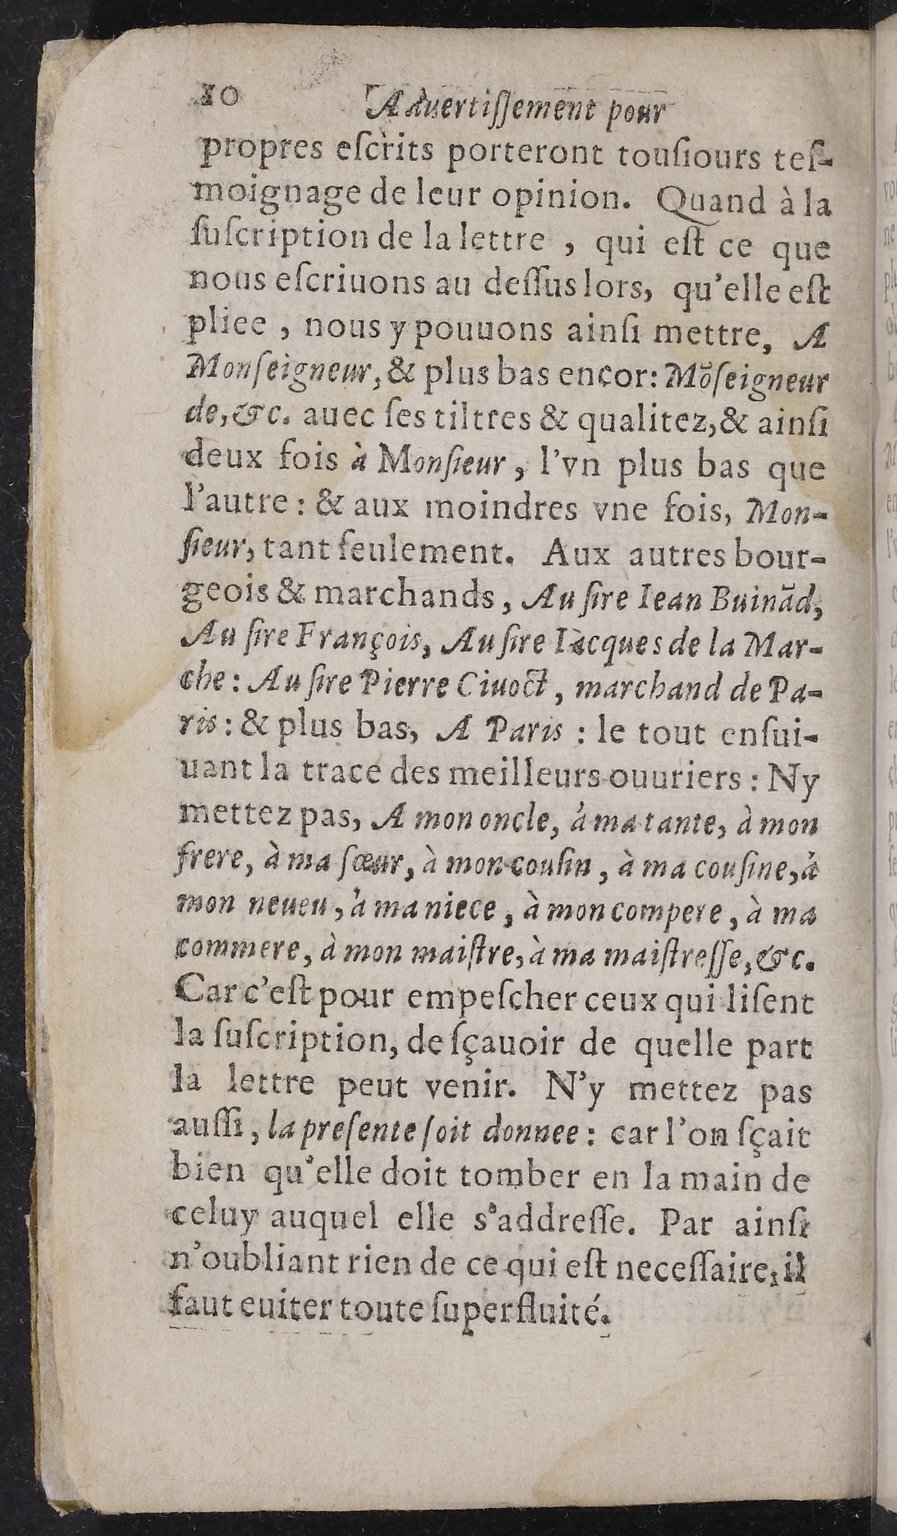 10 Aduertiſſement pour
propres eſcrits porteront touſiours teſ-
moignage de leur opinion. Quand à la
ſuſcription de la lettre , qui eſt ce que
nous eſcriuons au deſſus lors, qu'elle eſt
pliee , nous y pouuons ainſi mettre, A
Monſeigneur, & plus bas encor: Mõſeigneur
de, &c. auec ſes tiltres & qualitez, & ainſi
deux fois à Monſieur , l'vn plus bas que
l'autre : & aux moindres vne fois, Mon-
ſieur, tant ſeulement. Aux autres bour-
geois & marchands , Au ſire Iean Buinãd,
Au ſire François, Au ſire Iacques de la Mar-
che : Au ſire Pierre Ciuoct , marchand de Pa-
ris : & plus bas, A Paris : le tout enſui-
uant la trace des meilleurs ouuriers : Ny
mettez pas, A mon oncle, à ma tante, à mon
frere, à ma ſœur, à mon couſin , à ma couſine, à
mon neueu , à ma niece , à mon compere , à ma
commere, à mon maiſtre, à ma maiſtreſſe, &c.
Car c'eſt pour empeſcher ceux qui liſent
la ſuſcription, de ſçauoir de quelle part
la lettre peut venir. N'y mettez pas
auſſi, la preſente ſoit donnee : car l'on ſçait
bien qu'elle doit tomber en la main de
celuy auquel elle s'addreſſe. Par ainſi
n'oubliant rien de ce qui eſt neceſſaire, il
faut euiter toute ſuperfluité.